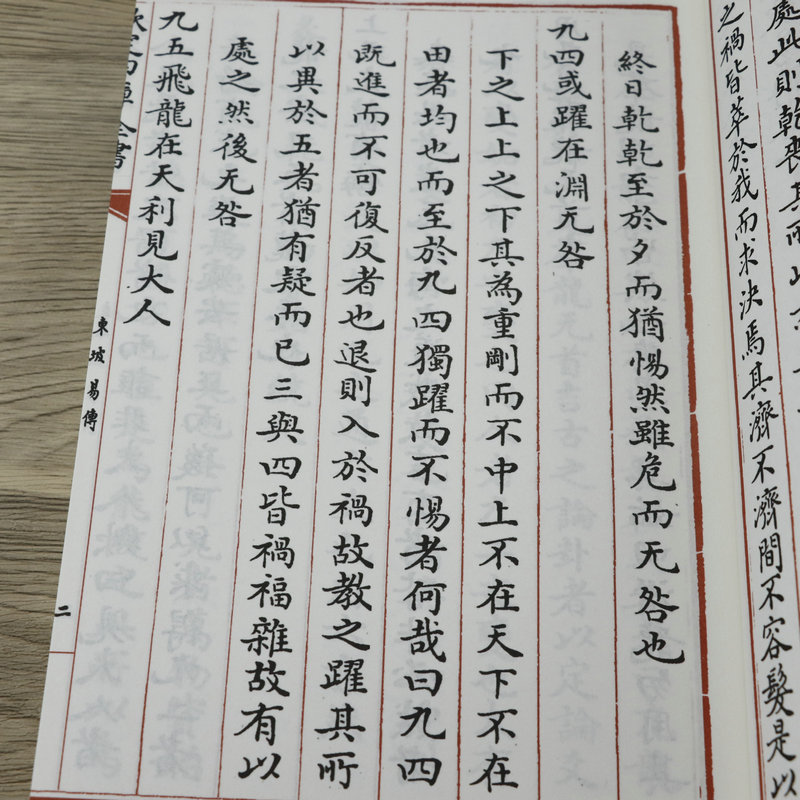 處此則乾喪其所以
之禍皆萃於我而求決焉其濟不濟間不容髮是以
終日乾乾至於夕而猶惕然雖危而无咎也
九四或躍在淵无咎
下之上上之下其為重剛而不中上不在天下不在
田者均也而至於九四獨躍而不惕者何哉曰九四
既進而不可復反者也退則入於禍故教之躍其所
以異於五者猶有疑而已三與四皆禍福雜故有以
處之然後无咎
九五飛龍在天利見大人
欽定四庫全書
東坡易傳
二